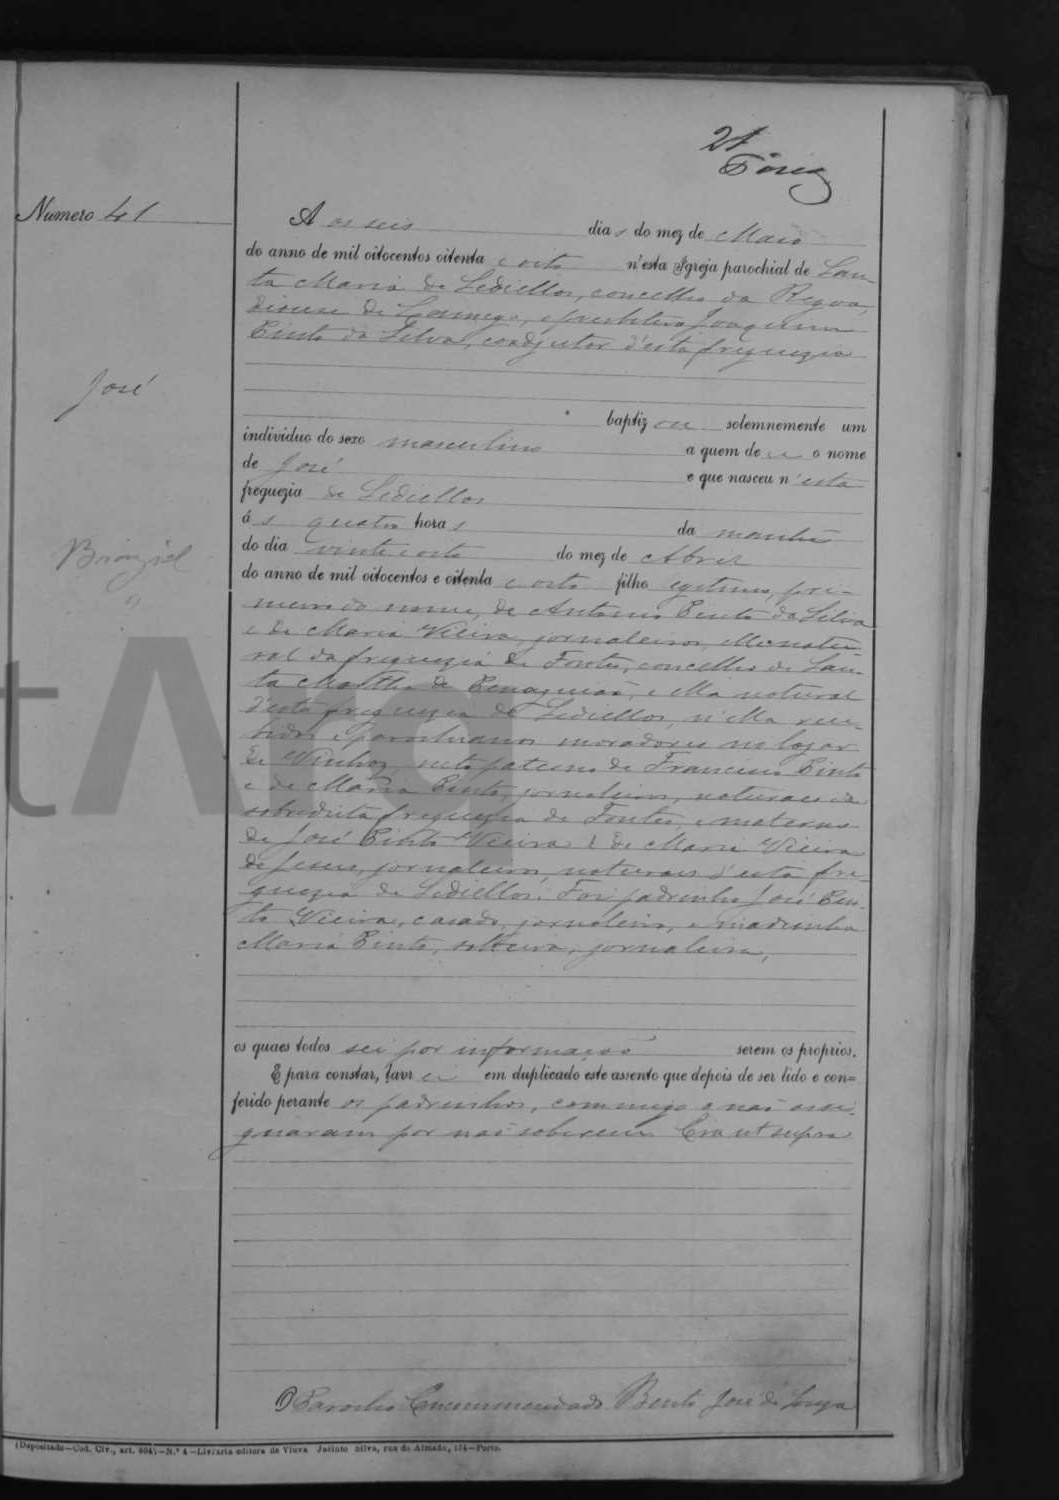 21
Numero 41
Aos seis dias do mez de Maio
do anno de mil oitocentos oitenta e oito n'esta Igreja parochial de San-
ta Maria de Sediellos, concelho da Regoa,
diocese de Lamego, o presbitero Joaquim
Pinto da Silva, coadjutor d'esta freguezia
José
baptizou solemnemente um
individuo do sexo masculino a quem dei o nome
de José e que nasceu n'esta
freguezia de Sediellos
ás quatro horas da manhã
do dia vinte e oito do mez de Abril
do anno de mil oitocentos e oitenta e oito filho legitimo, pri-
meiro do nome, de Antonio Pinto da Silva
e de Maria Vieira, jornaleiros, elle natu-
ral da freguezia de Fontes, concelho de San-
ta Martha de Penaguião, e ella natural
d'esta freguezia de Sediellos, n'ella rece-
bidos e parochianos moradores no logar
de Vinhos, neto paterno de Francisco Pinto
e de Maria Pinto, jornaleiros, naturaes da
sobredita freguezia de Fontes, e materno
de José Pinto Vieira e de Maria Vieira
de Jesus, jornaleiros, naturaes d'esta fre-
guezia de Sediellos. Foi padrinho José Pin-
to Vieira, casado, jornaleiro, e madrinha
Maria Pinto, solteira, jornaleira,
os quaes todos sei por informação serem os proprios.
E para constar, lavrei em duplicado este assento que depois de ser lido e con=
ferido perante os padrinhos, commigo o não assi-
gnaram por não saberem. Era ut supra
O Parocho Encommendado Bento José de Souza
(Depositado—Cod. Civ., art. 604)—N.º 4—Livraria editora da Viuva Jacintho Silva, rua do Almada, 134—Porto.
tAq